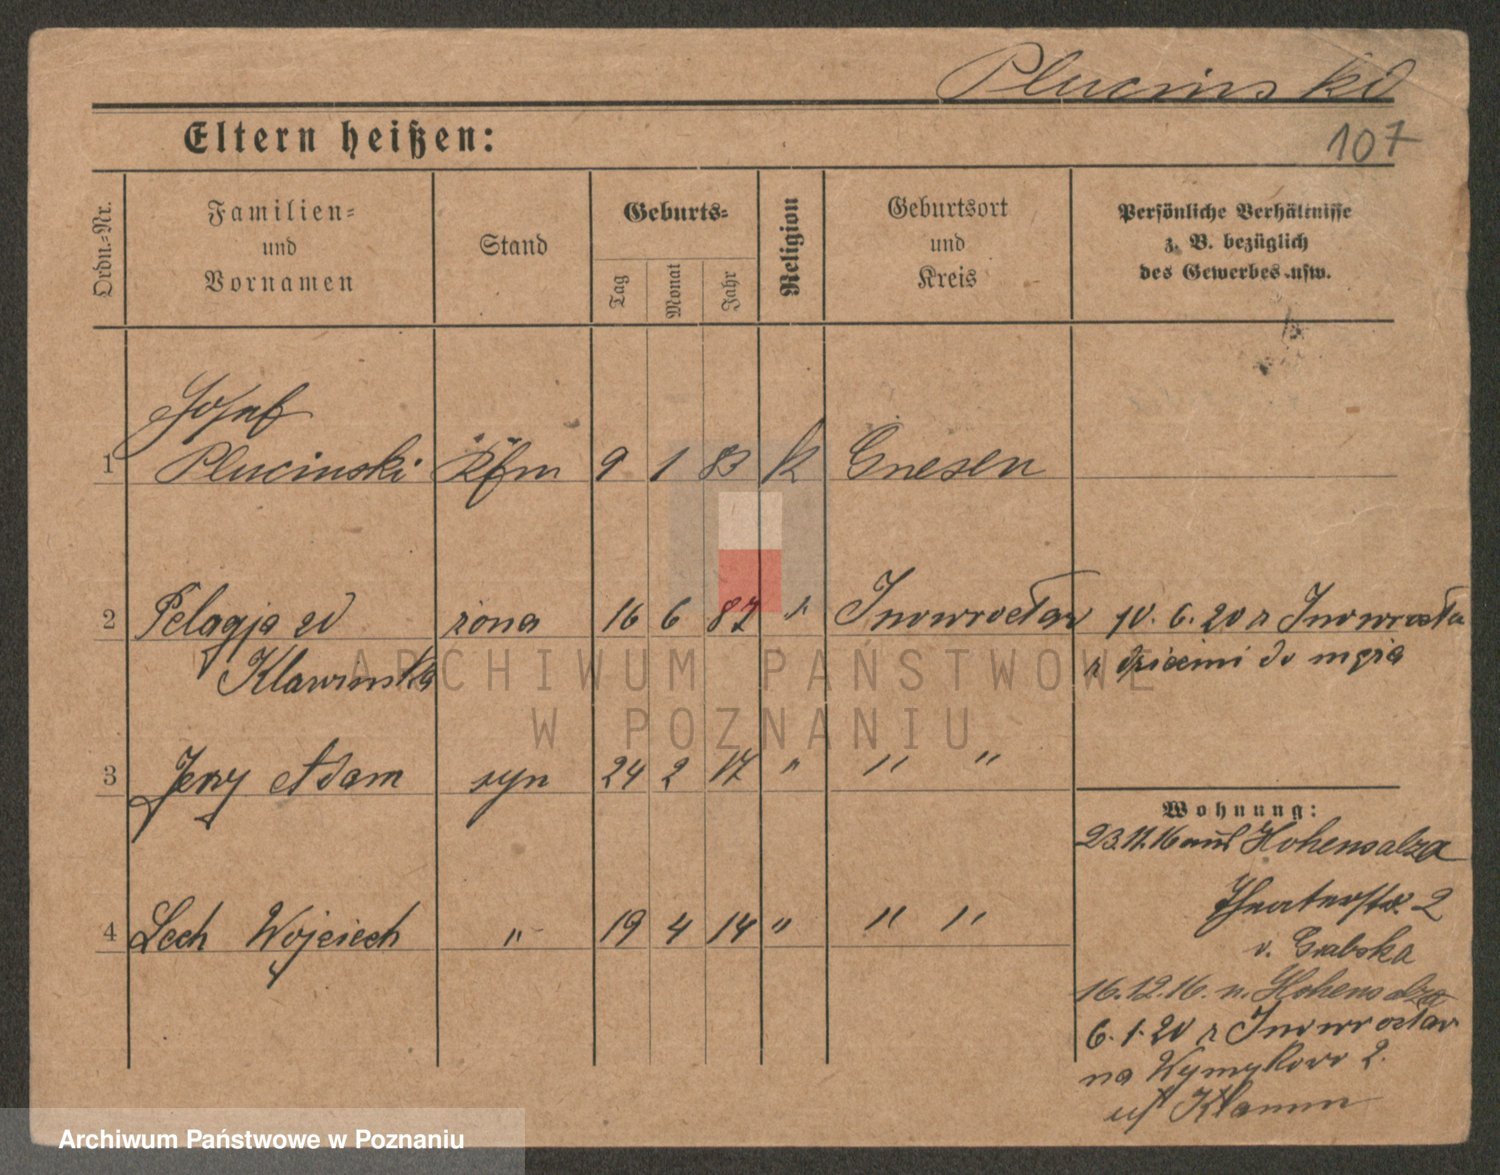 Plucinski
107
Eltern heißen:
Ordn.-Nr.
Familien-
und
Vornamen
Stand
Geburts-
Tag
Monat
Jahr
Religion
Geburtsort
und
Kreis
Persönliche Verhältnisse
z. B. bezüglich
des Gewerbes usw.
Josef
1 Plucinski Kfm 9 1 83 k Gnesen
2 Pelagja zd żona 16 6 87 " Inowrocław 10. 6. 20 z Inowrocła
Klawinska z dziećmi do męża
3 Jerzy Adam syn 24 2 17 " " "
Wohnung:
23.11.16 aus Hohensalza
Theaterstr. 2
4 Lech Wojciech " 19 4 14 " " "
v. Grabska
16.12.16. n. Hohensalza
6.1.20 z Inowrocław
na 2.
ARCHIWUM PAŃSTWOWE
W POZNANIU
Archiwum Państwowe w Poznaniu